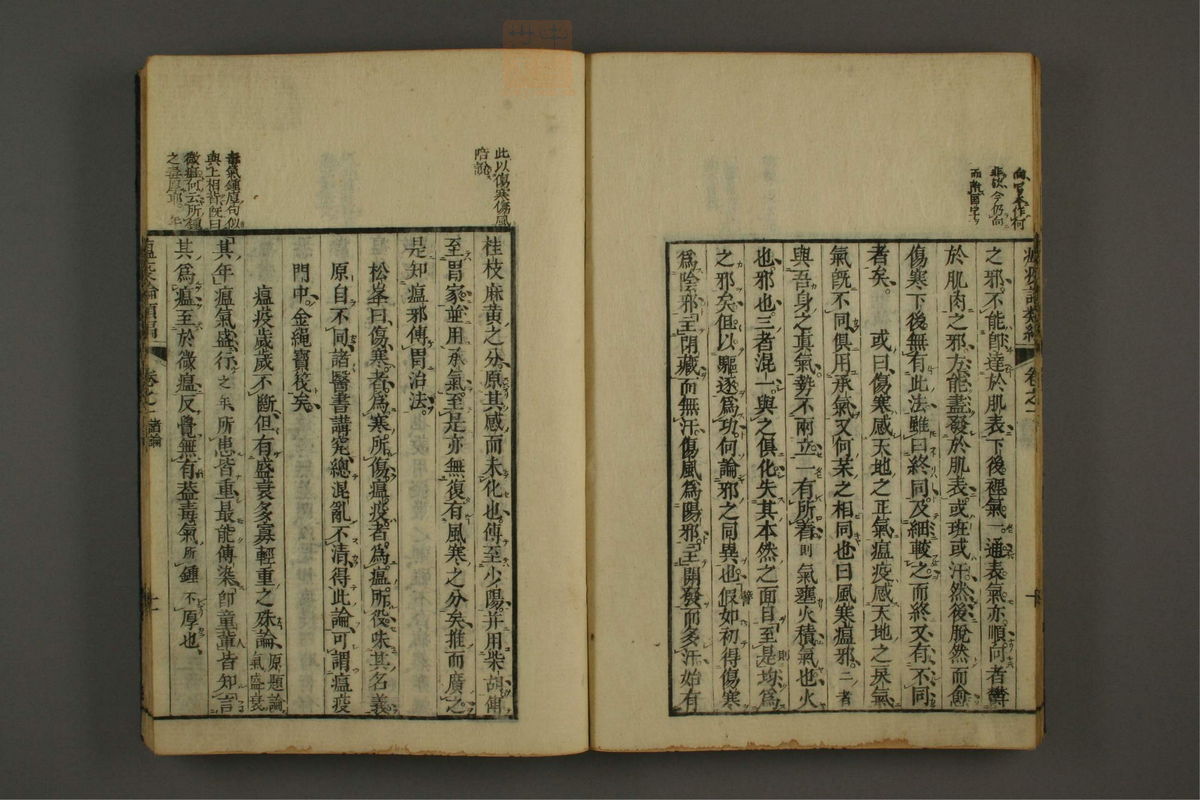 向官本作何
非汝今仍向
之邪不能卽達於肌表下後裡氣一通表氣亦順向者鬱
於肌肉之邪方能盡發於肌表或斑或汗然後脫然而愈
傷寒下後無有此法雖曰終同及細較之而終又有不同
者矣　或曰傷寒感天地之正氣瘟疫感天地之戾氣
氣旣不同俱用承氣又何某之相同也曰風寒瘟邪二者
與吾身之眞氣勢不兩立一有所着則氣壅火積氣也火
也邪也三者混一與之俱化失其本然之面目至是均爲
之邪矣但以驅逐爲功何論邪之同異也假如初得傷寒
爲陰邪主閉藏而無汗傷風爲陽邪主開發而多汗始有
卷之一
十
此以傷寒傷風
陪說
桂枝麻黃之分原其感而未化也傳至少陽并用柴胡傳
至胃家並用承氣至是亦無復有風寒之分矣推而廣之
是知瘟邪傳胃治法
松峯曰傷寒者爲寒所傷瘟疫者爲瘟所役味其名義
原自不同諸醫書講究總混亂不清得此論可謂瘟疫
門中金繩寶筏矣
瘟疫歲歲不斷但有盛衰多寡輕重之殊論原題論氣盛衰
毒氣鍾厚句似
與上相背旣曰
微瘟何云所鍾
其年瘟氣盛行之年所患皆重最能傳染卽童輩皆知言
其爲瘟至於微瘟反覺無有葢毒氣所鍾不厚也
卷之一　諸論
十一